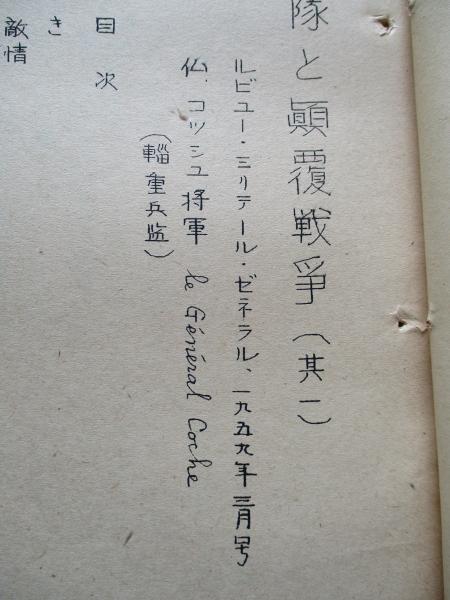 隊と顚覆戦爭（其一）
ルビュー・ミリテール・ゼネラル、一九五九年三月号
仏、コッシュ将軍 le Général Coche
（輜重兵监）
目次
き
敵情